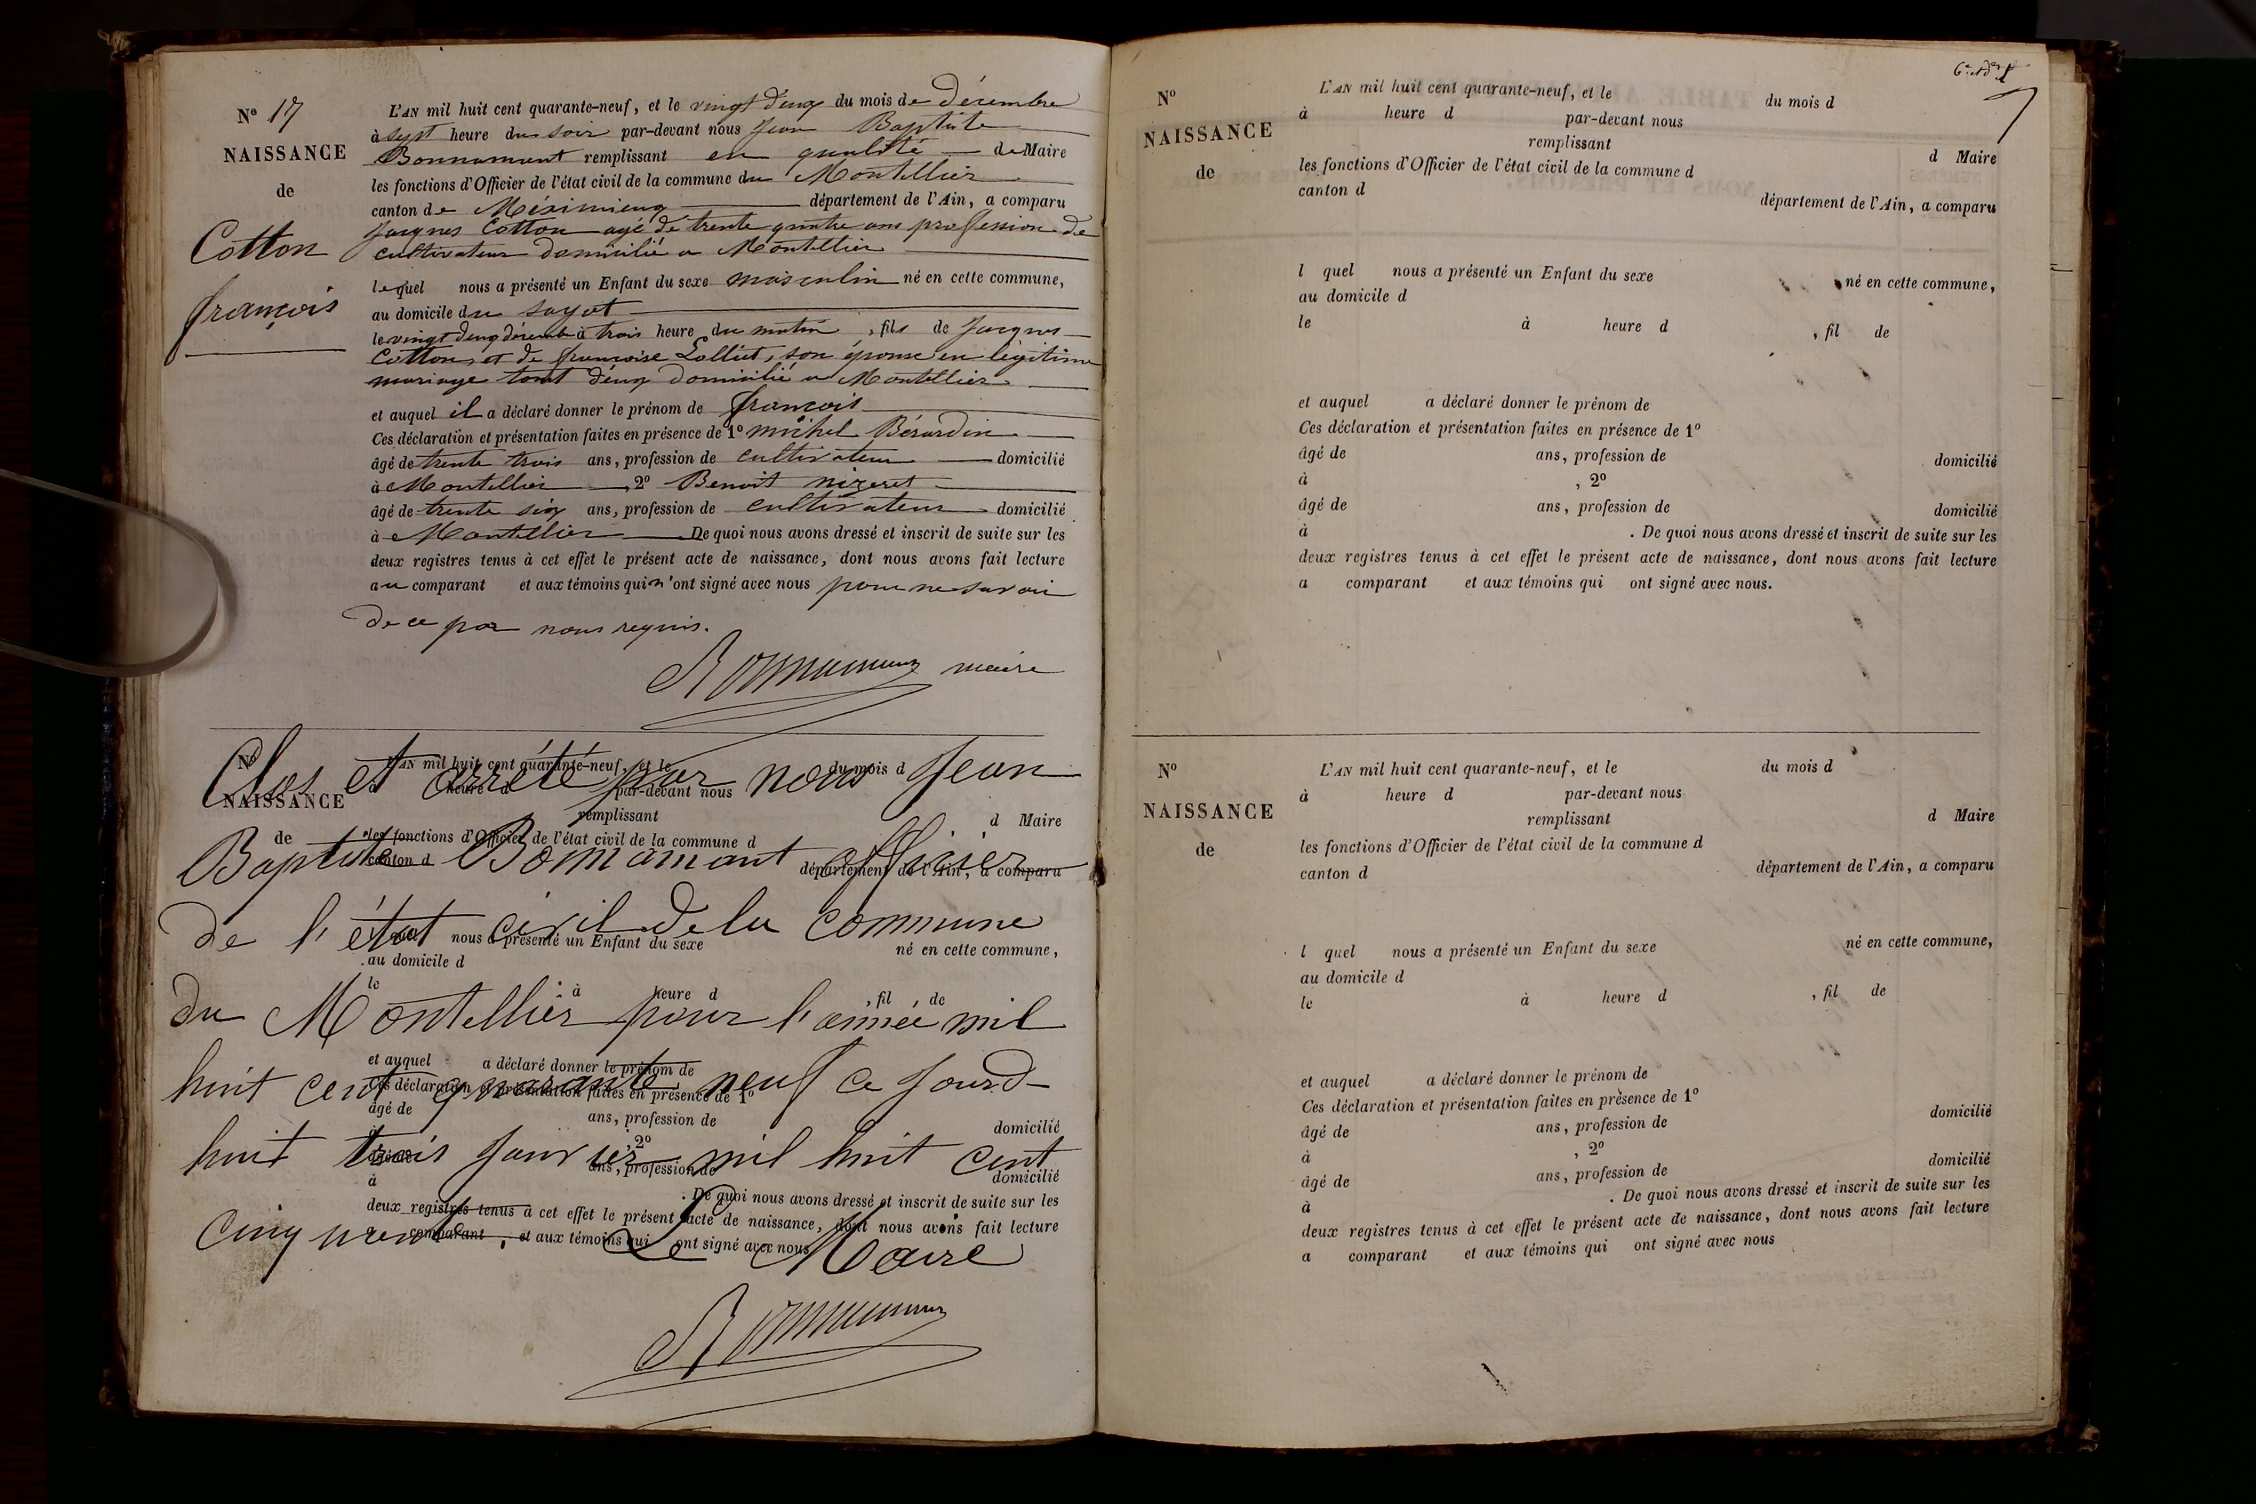 N° 17
NAISSANCE
de
Cotton
françois
L'AN mil huit cent quarante-neuf, et le vingt deux du mois de décembre
à sept heure du soir par-devant nous Jean Baptiste
Bonnamant remplissant en qualité de Maire
les fonctions d'Officier de l'état civil de la commune du Montellier
canton de Méximieux département de l'Ain, a comparu
Jacques Cotton agé de trente quatre ans profession de
cultivateur domicilié a Montellier
lequel nous a présenté un Enfant du sexe masculin né en cette commune,
au domicile du sayot
le vingt deux décembre à trois heure du matin, fils de Jacques
Cotton, et de françoise Lolliet, son épouse en légitime
mariage tout deux domicilié a Montellier
et auquel il a déclaré donner le prénom de françois
Ces déclaration et présentation faites en présence de 1° michel Bérardin
âgé de trente trois ans, profession de cultivateur domicilié
à Montellier, 2° Benoit nizeret
âgé de trente six ans, profession de cultivateur domicilié
à Montellier De quoi nous avons dressé et inscrit de suite sur les
deux registres tenus à cet effet le présent acte de naissance, dont nous avons fait lecture
au comparant et aux témoins qui n'ont signé avec nous pour ne savoir
de ce par nous requis.
Bonnamant maire
N°
NAISSANCE
de
L'AN mil huit cent quarante-neuf, et le du mois d
à heure d par-devant nous
remplissant d Maire
les fonctions d'Officier de l'état civil de la commune d
canton d département de l'Ain, a comparu
l quel nous a présenté un Enfant du sexe né en cette commune,
au domicile d
le à heure d , fil de
et auquel a déclaré donner le prénom de
Ces déclaration et présentation faites en présence de 1°
âgé de ans, profession de domicilié
à , 2°
âgé de ans, profession de domicilié
à . De quoi nous avons dressé et inscrit de suite sur les
deux registres tenus à cet effet le présent acte de naissance, dont nous avons fait lecture
comparant et aux témoins qui ont signé avec nous
Clos et arrêté par nous Jean
Baptiste Bonnamant officier
de l'état civil de la commune
du Montellier pour l'année mil
huit cent quarante neuf ce jourd-
huit trois janvier mil huit cent
cinquante. Le Maire
Bonnamant
7
N°
NAISSANCE
de
L'AN mil huit cent quarante-neuf, et le du mois d
à heure d par-devant nous
remplissant d Maire
les fonctions d'Officier de l'état civil de la commune d
canton d département de l'Ain, a comparu
l quel nous a présenté un Enfant du sexe né en cette commune,
au domicile d
le à heure d , fil de
et auquel a déclaré donner le prénom de
Ces déclaration et présentation faites en présence de 1°
âgé de ans, profession de domicilié
à , 2°
âgé de ans, profession de domicilié
à . De quoi nous avons dressé et inscrit de suite sur les
deux registres tenus à cet effet le présent acte de naissance, dont nous avons fait lecture
a comparant et aux témoins qui ont signé avec nous.
N°
NAISSANCE
de
L'AN mil huit cent quarante-neuf, et le du mois d
à heure d par-devant nous
remplissant d Maire
les fonctions d'Officier de l'état civil de la commune d
canton d département de l'Ain, a comparu
l quel nous a présenté un Enfant du sexe né en cette commune,
au domicile d
le à heure d , fil de
et auquel a déclaré donner le prénom de
Ces déclaration et présentation faites en présence de 1°
âgé de ans, profession de domicilié
à , 2°
âgé de ans, profession de domicilié
à . De quoi nous avons dressé et inscrit de suite sur les
deux registres tenus à cet effet le présent acte de naissance, dont nous avons fait lecture
a comparant et aux témoins qui ont signé avec nous